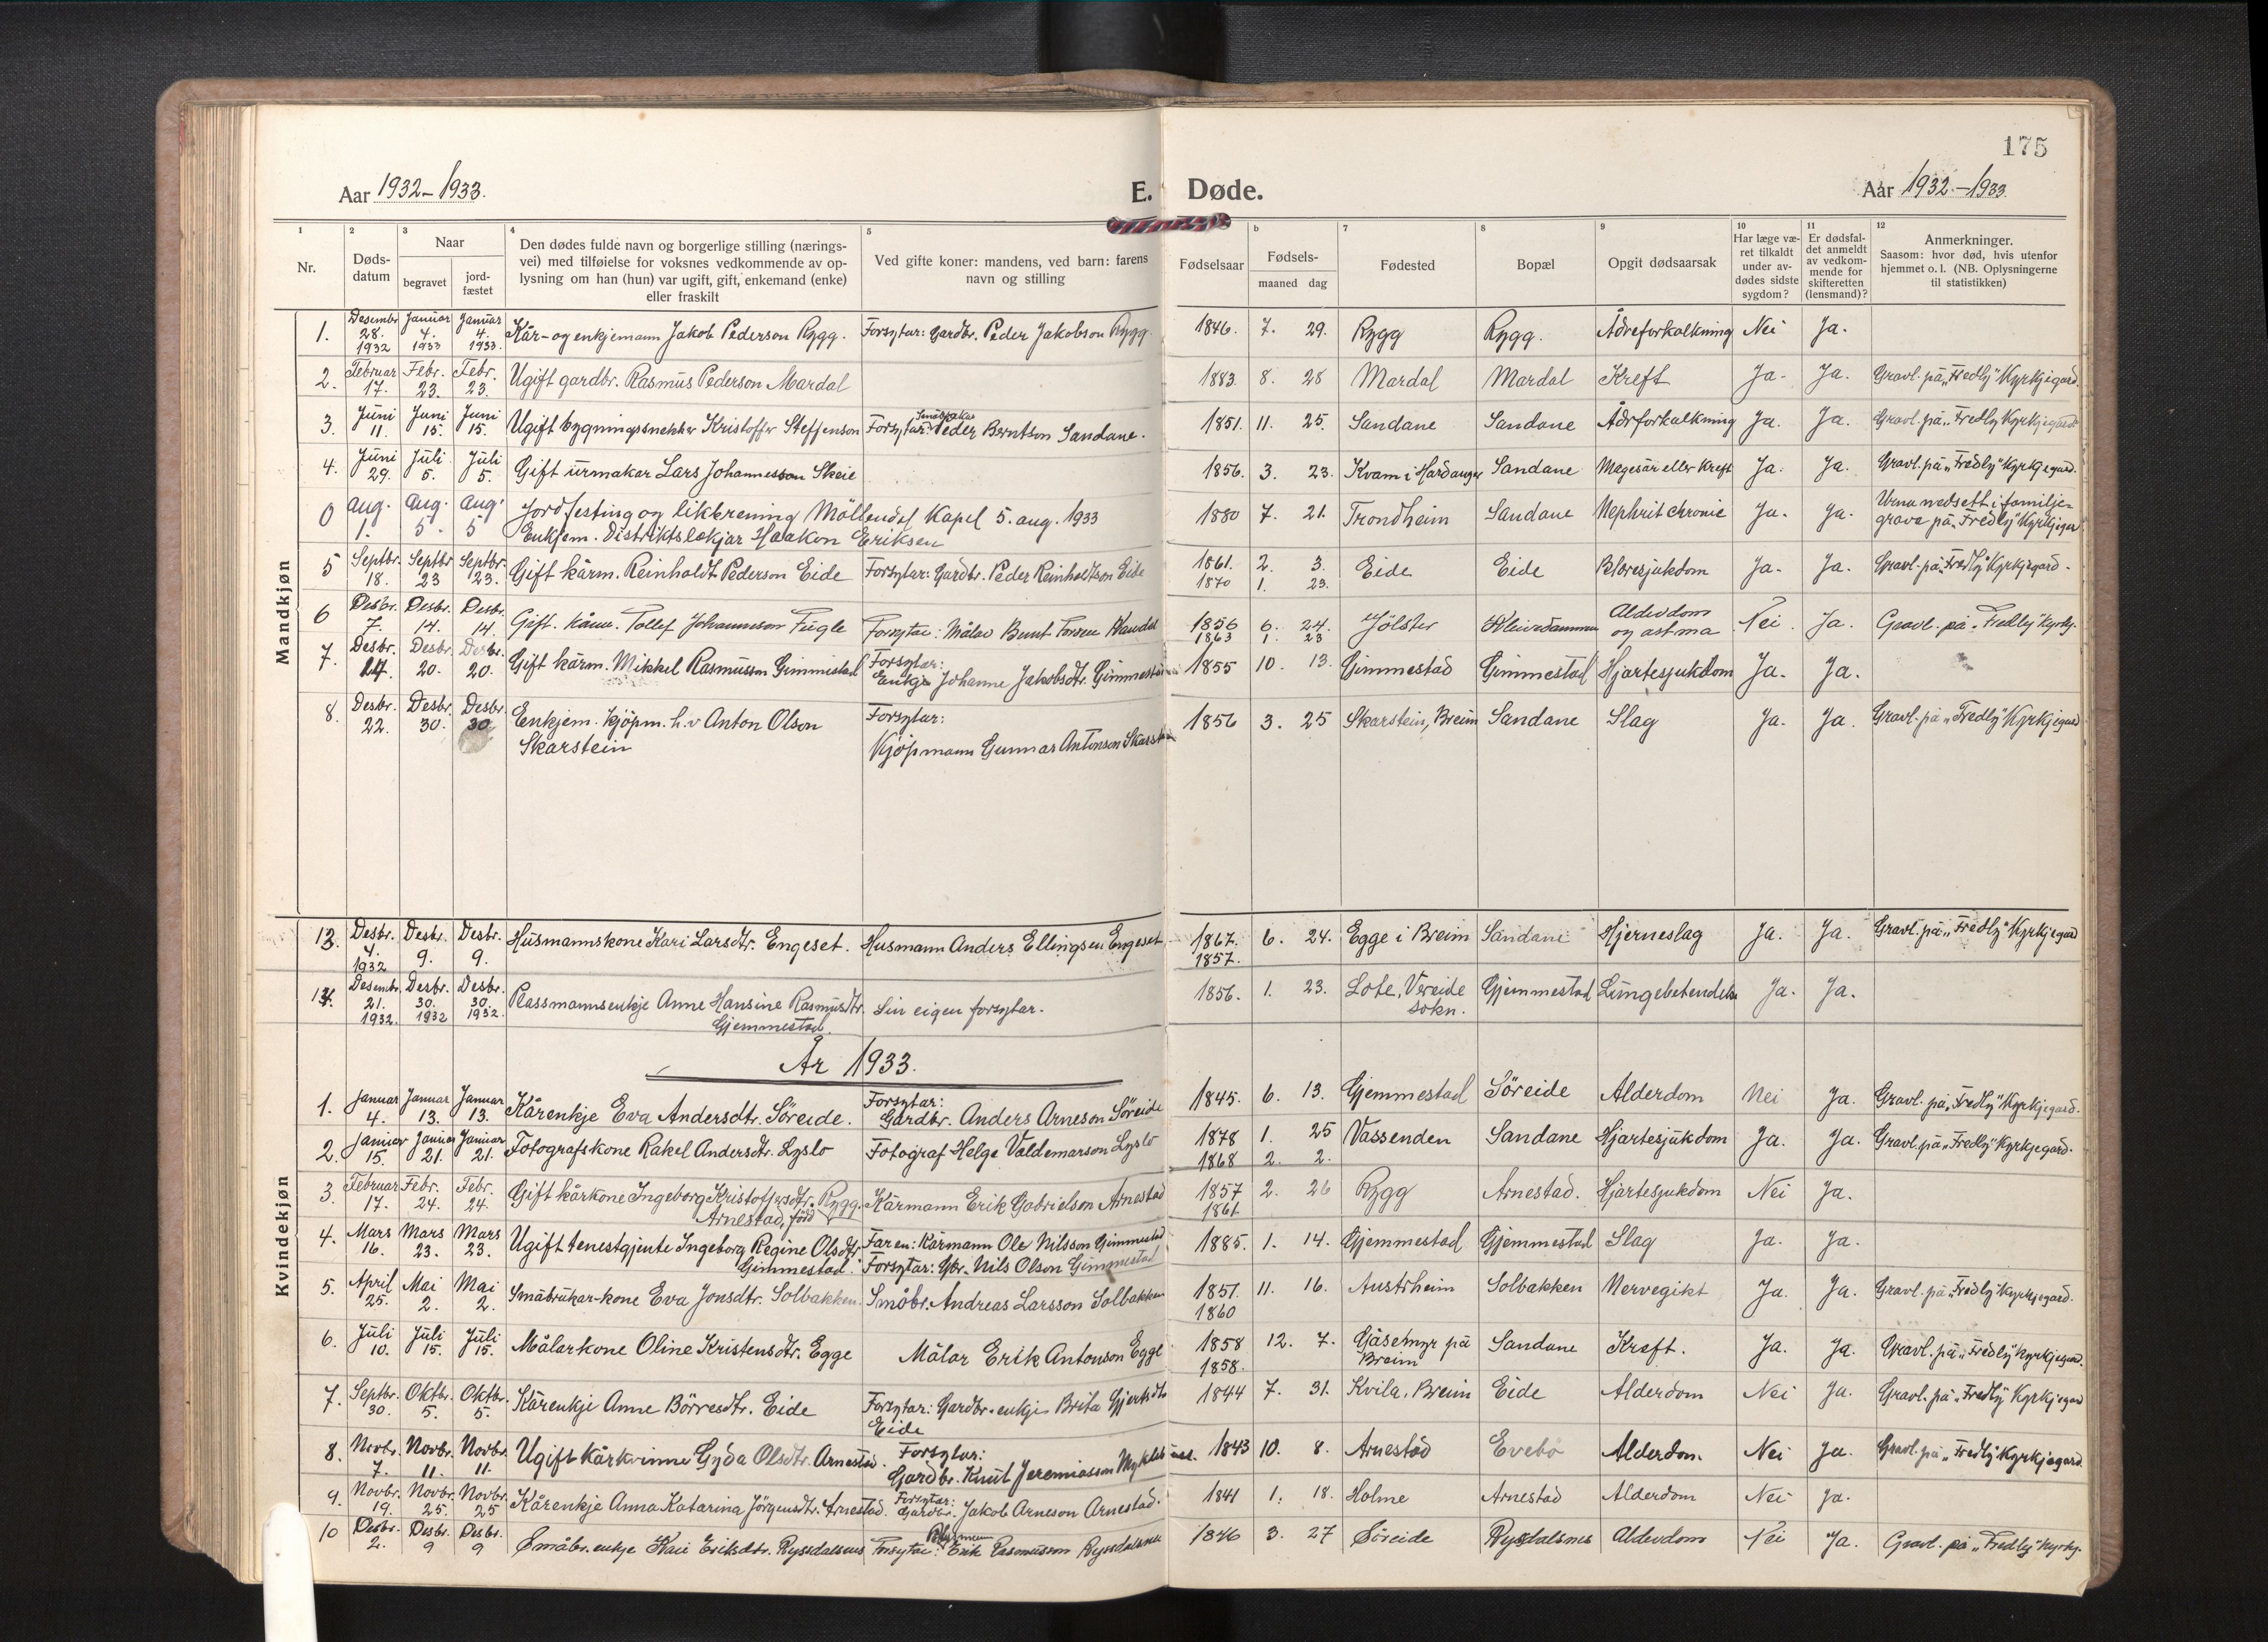 175
Aar 1932-1933.
E. Døde.
Aar 1932.-1933.
1 2 3 4 5 6 7 8 9 10 11 12
Nr.
Døds-
datum
Naar
begravet
jord-
fæstet
Den dødes fulde navn og borgerlige stilling (nærings-
vei) med tilføielse for voksnes vedkommende av op-
lysning om han (hun) var ugift, gift, enkemand (enke)
eller fraskilt
Ved gifte koner: mandens, ved barn: farens
navn og stilling
Fødselsaar
Fødsels-
maaned dag
Fødested
Bopæl
Opgit dødsaarsak
Har læge væ-
ret tilkaldt
under av-
dødes sidste
sygdom?
Er dødsfal-
det anmeldt
av vedkom-
mende for
skifteretten
(lensmand)?
Anmerkninger.
Saasom: hvor død, hvis utenfor
hjemmet o. l. (NB. Oplysningerne
til statistikken)
Mandkjøn
1. Desembr. 28. 1932 Januar 4. 1933 Januar 4. 1933. Kår-og enkjemann Jakob Pederson Rygg. Forsytar: Gardbr. Peder Jakobson Rygg. 1846. 7. 29. Rygg Rygg. Ådreforkalkning Nei Ja.
2. Februar 17. Febr. 23. Febr. 23. Ugift gardbr. Rasmus Pederson Mardal 1883. 8. 28 Mardal Mardal Kreft Ja. Ja. Gravl. på „Fredly" Kyrkjegard.
3. Juni 11. Juni 15. Juni 15. Ugift bygningssnekker Kristoffer Steffenson Forsytar: Peder Berntson Sandane. 1851. 11. 25. Sandane Sandane Ådrforkalkning Ja. Ja. Gravl. på „Fredly" Kyrkjegard
4. Juni 29. Juli 5. Juli 5. Gift urmakar Lars Johannesson Skeie 1856. 3. 23. Kvam i Hardanger Sandane Magesår eller Kreft Ja. Ja. Gravl. på „Fredly" Kyrkjegard.
0 Aug. 1. Aug. 5 Aug. 5 Jordfesting og likbrening Möllendal Kapel 5. aug. 1933
Enkjem. Distriktslækjar Haakon Eriksen 1880 7. 21. Trondheim Sandane Nephrit chronic Ja. Ja. Urna nedsett i familje-
grava på „Fredly" Kyrkjegar
5 Septbr. 18. Septbr. 23 Septbr. 23. Gift kårm. Reinholdt Pederson Eide Forsytar: Gardbr. Peder Reinholtson Eide 1861. 2. 3. Eide Eide Blæresjukdom Ja. Ja. Gravl. på „Fredly" Kyrkjegard.
1870 1. 23.
6 Desbr. 7. Desbr. 14. Desbr. 14. Gift. kårm. Tollef Johanneson Fugle Forsytar: Målar Bernt 1856 6. 24. Jölster Kleivedammen Alderdom
og astma Nei. Ja. Gravl. på „Fredly" Kyrkj.
1863 1. 23
7. Desbr. 14. Desbr. 20. Desbr. 20. Gift kårm. Mikkel Rasmusson Gimmestad Forsytar:
Enkje Johanne Jakobsdtr. Gimmestad 1855 10. 13. Gimmestad Gimmestad Hjartesjukdom Ja. Ja.
8. Desbr. 22. Desbr. 30. Desbr. 30 Enkjem. kjöpm. h.v Anton Olson
Skarstein
Forsytar:
Kjöpmann Gunnar Antonson Skarstein 1856 3. 25 Skarstein, Breim Sandane Slag Ja. Ja. Gravl. på „Fredly" Kyrkjegard
Kvindekjøn
13. Desbr. 4. 1932 Desbr. 9. Desbr. 9. Husmannskone Kari Larsdtr. Engeset. Husmann Anders Ellingsen Engeset 1867. 6. 24. Egge i Breim Sandane Hjerneslag Ja. Ja. Gravl. på „Fredly" Kyrkjegard
1857.
14. Desembr. 21. 1932. Desbr. 30. 1932 Desbr. 30. 1932. Plassmannsenkje Anne Hansine Rasmusdtr.
Gjemmestad. Sin eigen forsytar. 1856. 1. 23. Lote, Vereide
sokn. Gjemmestad Lungebetendelse Ja. Ja.
År 1933.
1. Januar 4. Januar 13. Januar 13. Kårenkje Eva Andersdtr. Söreide. Forsytar:
Gardbr. Anders Arneson Söreide 1845. 6. 13. Gjemmestad Söreide Alderdom Nei Ja. Gravl. på „Fredly" Kyrkjegard.
2. Januar 15. Januar 21. Januar 21. Fotografskone Rakel Andersdtr. Lyslo Fotograf Helge Valdemarson Lyslo 1878 1. 25 Vassenden Sandane Hjartesjukdom Ja. Ja. Gravl. på „Fredly" Kyrkjegard.
1868 2. 2.
3. Februar 17. Febr. 24. Febr. 24. Gift kårkone Ingeborg Kristoffersdtr. Rygg.
Arnestad, född Kårmann Erik Gabrielson Arnestad 1857 2. 26 Rygg Arnestad. Hjartesjukdom Nei Ja.
1861.
4. Mars 16. Mars 23. Mars 23. Ugift tenestgjente Ingeborg Regine Olsdtr.
Gimmestad. Faren: Kårmann Ole Nilsson Gimmestad
Forsytar: Gbr. Nils Olson Gimmestad 1885. 1. 14. Gjemmestad Gjemmestad Slag Ja. Ja.
5. April 25. Mai 2. Mai 2. Småbrukar-kone Eva Jonsdtr. Solbakken. Småbr. Andreas Larsson Solbakken 1857. 11. 16. Austrheim Solbakken Nervegikt Ja. Ja. Gravl. på „Fredly" Kyrkjegard.
1860
6. Juli 10. Juli 15. Juli 15. Målarkone Oline Kristensdtr. Egge Målar Erik Antonson Egge 1858 12. 7. Gåsemyr på
Breim Sandane Kreft. Ja. Ja. Gravl. på „Fredly" Kyrkjegard.
1858.
7. Septbr. 30. Oktbr. 5. Oktbr. 5. Kårenkje Anne Börresdtr. Eide Forsytar: Gardbr.enkje Brita Gjertsdtr
Eide 1844 7. 31. Kvila, Breim Eide Alderdom Nei Ja. Gravl. på „Fredly" Kyrkjegar
8. Novbr. 7. Novbr. 11. Novbr. 11. Ugift kårkvinne Gyda Olsdtr. Arnestad. Forsytar:
Gardbr. Knut Jeremiasson 1843 10. 8. Arnestad Evebö Alderdom. Nei Ja. Gravl. på „Fredly" Kyrkjegard
9. Novbr. 19. Novbr. 25. Novbr. 25 Kårenkje Anna Katarina Jörgensdtr. Arnestad. Forsytar:
Gardbr. Jakob Arneson Arnestad. 1841 1. 18. Holme Arnestad Alderdom Nei Ja.
10 Desbr. 2. Desbr. 9 Desbr. 9 Småbr. enkje Kari Eriksdtr. Ryssdalsnes Forsytar: Erik Rasmusson Ryssdalsnes 1846 3. 27 Söreide Ryssdalsnes Alderdom Nei Ja. Gravl. på „Fredly" Kyrkj.